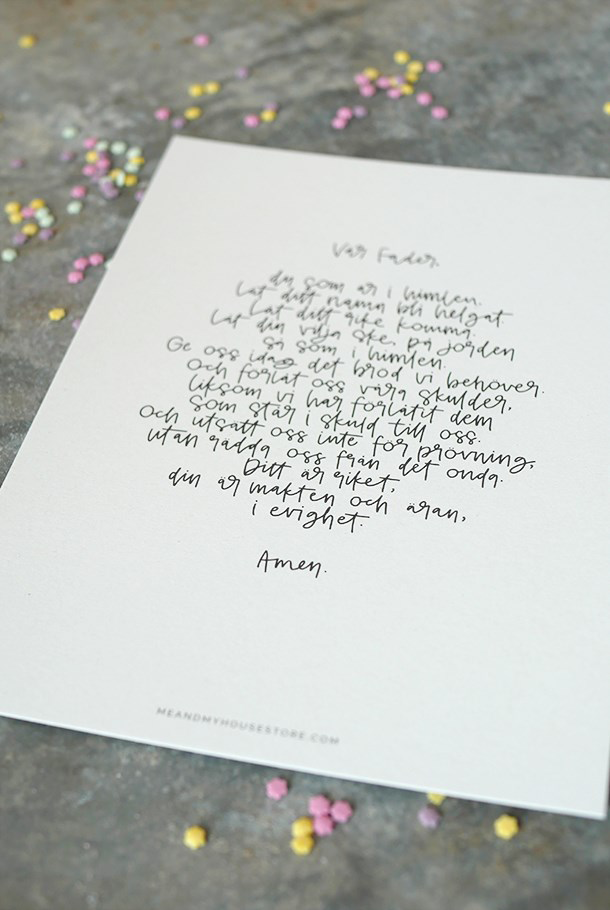 Vår Fader.
du som är i himlen.
Låt ditt namn bli helgat.
Låt ditt rike komma.
Låt din vilja ske, på jorden
så som i himlen.
Ge oss idag det bröd vi behöver.
Och förlåt oss våra skulder,
liksom vi har förlåtit dem
som står i skuld till oss.
Och utsätt oss inte för prövning,
utan rädda oss från det onda.
Ditt är riket,
din är makten och äran,
i evighet.
Amen.
MEANDMYHOUSESTORE.COM